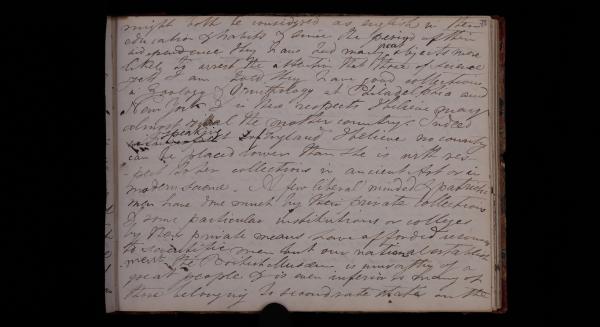 might both be considered as english in their
education & habits & since the period of their
independence they have had many great objects more
likely to arrest the attention than those of science
yet I am told they have good collections
in Zoology & Ornithology at Philadelphia and
New York & in this respect I believe may
almost equal the mother country. Indeed
speaking of England I believe no country
can be placed lower than she is with res-
-pect to her collections in ancient Art or in
modern science. A few liberal minded & patriotic
men have done much by their private collections
& some particular institutions or colleges
by their private means have afforded
to scientific men but our national establish
-ment the British Museum is unworthy of a
great people & is even inferior to many of
those belonging to second rate states on the